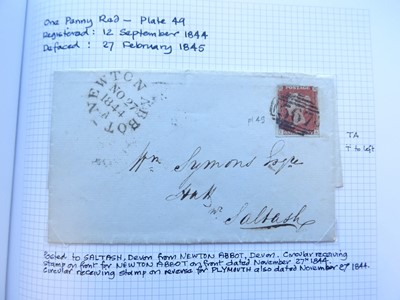 One Penny Red - Plate 49
Registered: 12 September 1844
Defaced: 27 February 1845
NEWTON-ABBOT
NO 27
1844
A
567
pl 49
TA
T to left
Wm Symons Esqre
Saltash
Posted to SALTASH, Devon from NEWTON ABBOT, Devon. Circular receiving
stamp on front for NEWTON ABBOT on front dated November 27th 1844.
Circular receiving stamp on reverse for PLYMOUTH also dated November 27 1844.